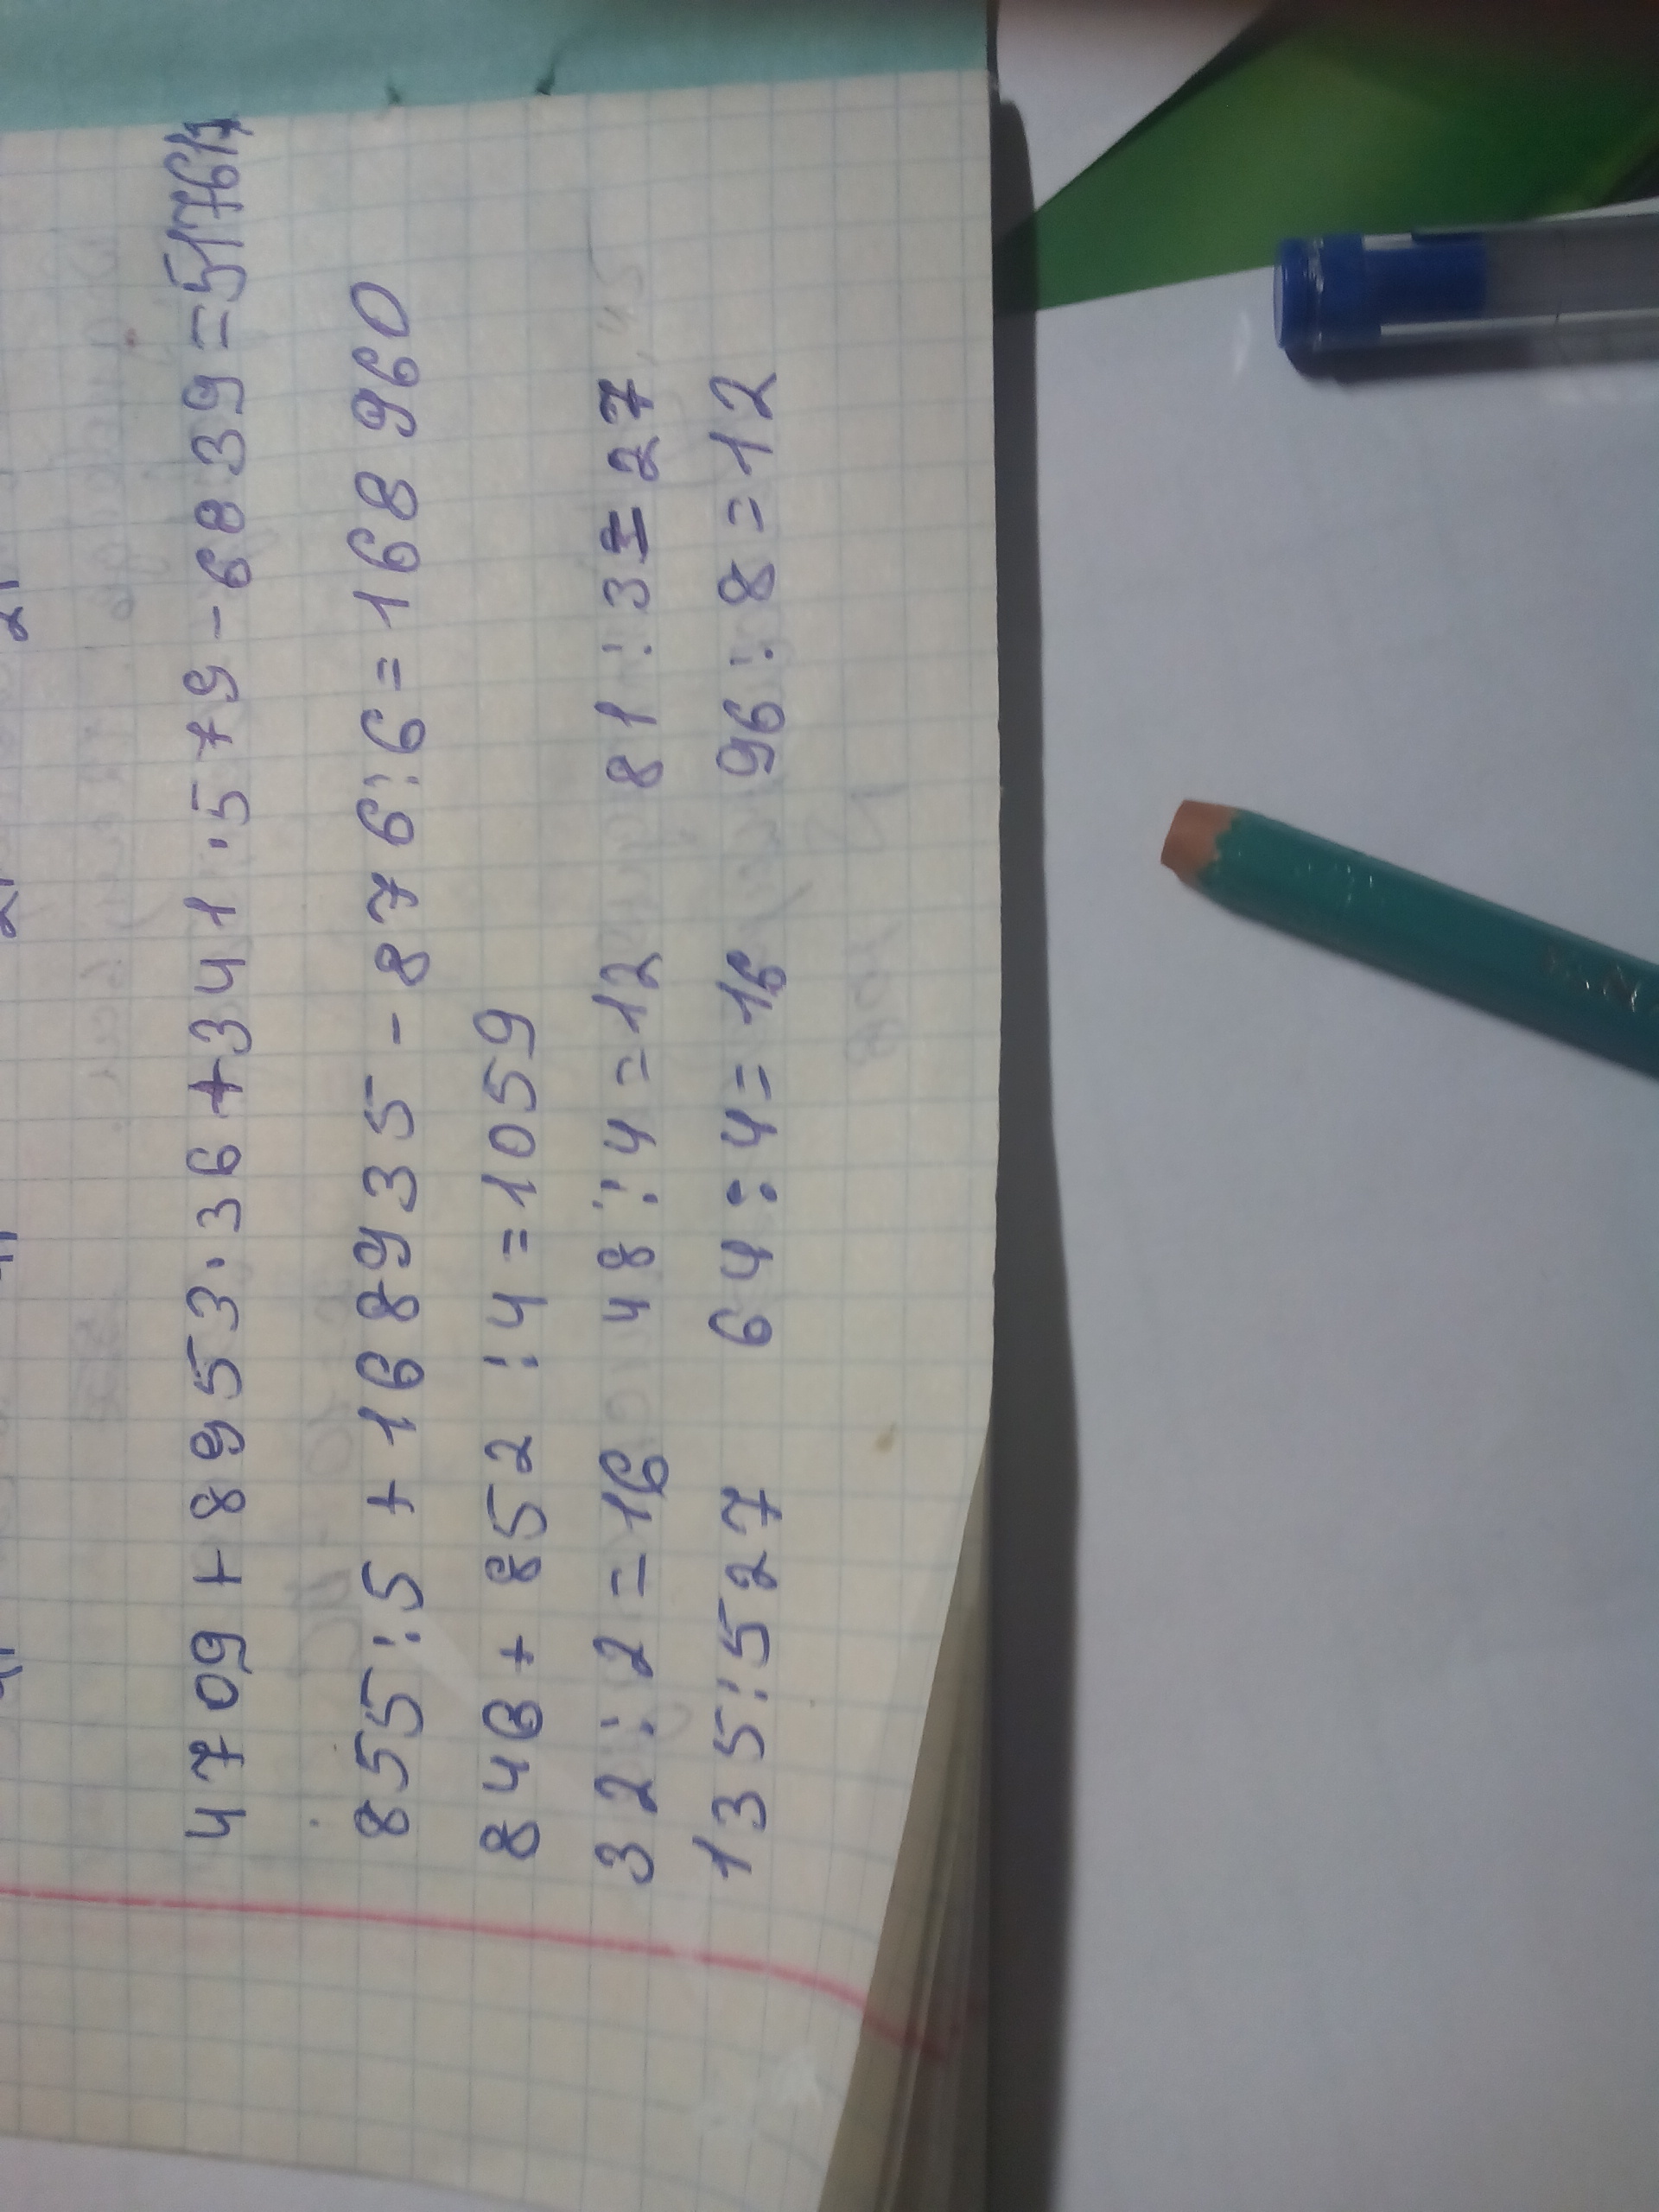 4709 + 8953 · 36 + 341 · 579 - 6839 = 517617
855 : 5 + 168935 - 876 : 6 = 168 960
846 + 852 : 4 = 1059
32 : 2 = 16 48 : 4 = 12 81 : 3 = 27
135 : 5 27 64 : 4 = 16 96 : 8 = 12